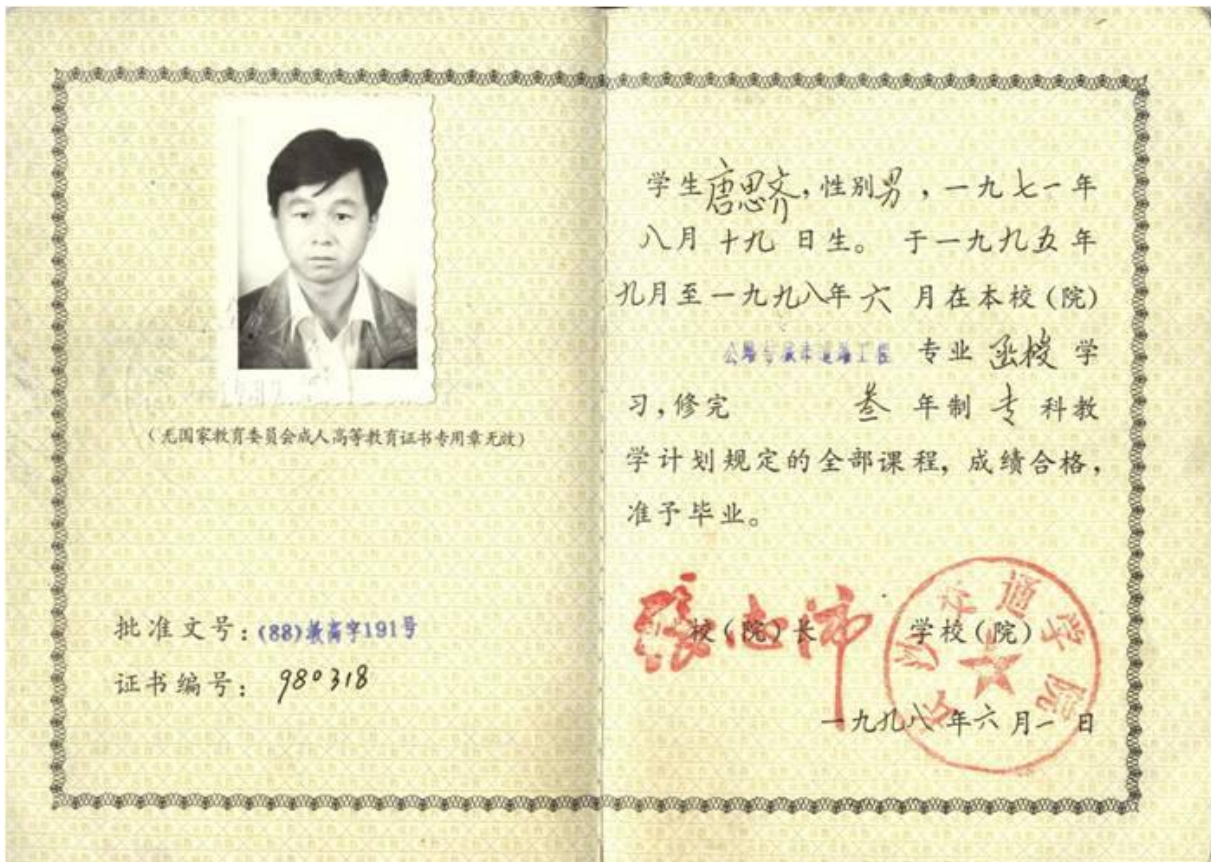 (无国家教育委员会成人高等教育证书专用章无效)
批准文号:(88)教高字191号
证书编号:980318
学生唐思齐,性别男,一九七一年
八月十九日生。于一九九五年
九月至一九九八年六月在本校(院)
公路与城市道路工程 专业函授学
习,修完 叁年制专科教
学计划规定的全部课程,成绩合格,
准予毕业。
校(院)长 学校(院)
交通学院
一九九八年六月一日